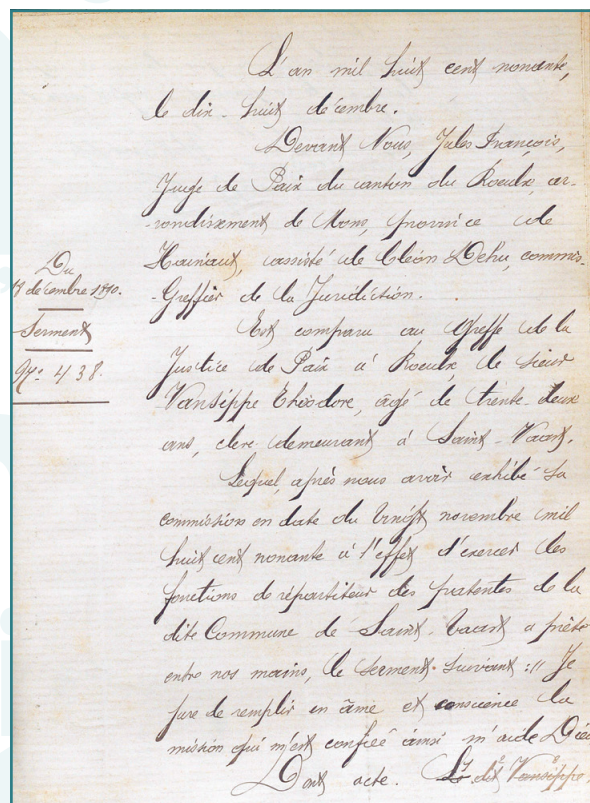 L'an mil huit cent nonante,
le dix-huit décembre.
Devant Nous, Jules François,
Juge de Paix du canton du Roeulx, ar-
-rondissement de Mons, province de
Hainaut, assisté de Cléon Dehu, commis-
-Greffier de la Juridiction.
Est comparu au Greffe de la
Justice de Paix à Roeulx le sieur
Vansippe Théodore, âgé de trente-deux
ans, clerc demeurant à Saint-Vaast.
Lequel, après nous avoir exhibé sa
commission en date du vingt novembre mil
huit cent nonante à l'effet d'exercer les
fonctions de répartiteur des patentes de la
dite Commune de Saint-Vaast a prêté
entre nos mains, le serment suivant :" Je
jure de remplir en âme et conscience la
mission qui m'est confiée ainsi m'aide Dieu
Dont acte. Le dit Vansippe
Du
18 décembre 1890.
Serment
N° 438.